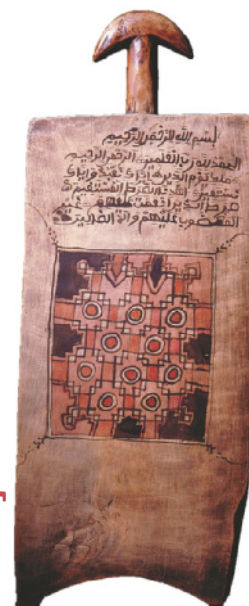 بسم الله الرحمن الرحيم
الحمد لله رب العلمين الرحمن الرحيم
ملك يوم الدين إياك نعبد وإياك
نستعين اهدنا الصرط المستقيم
صرط الذين أنعمت عليهم غير
المغضوب عليهم ولا الضالين